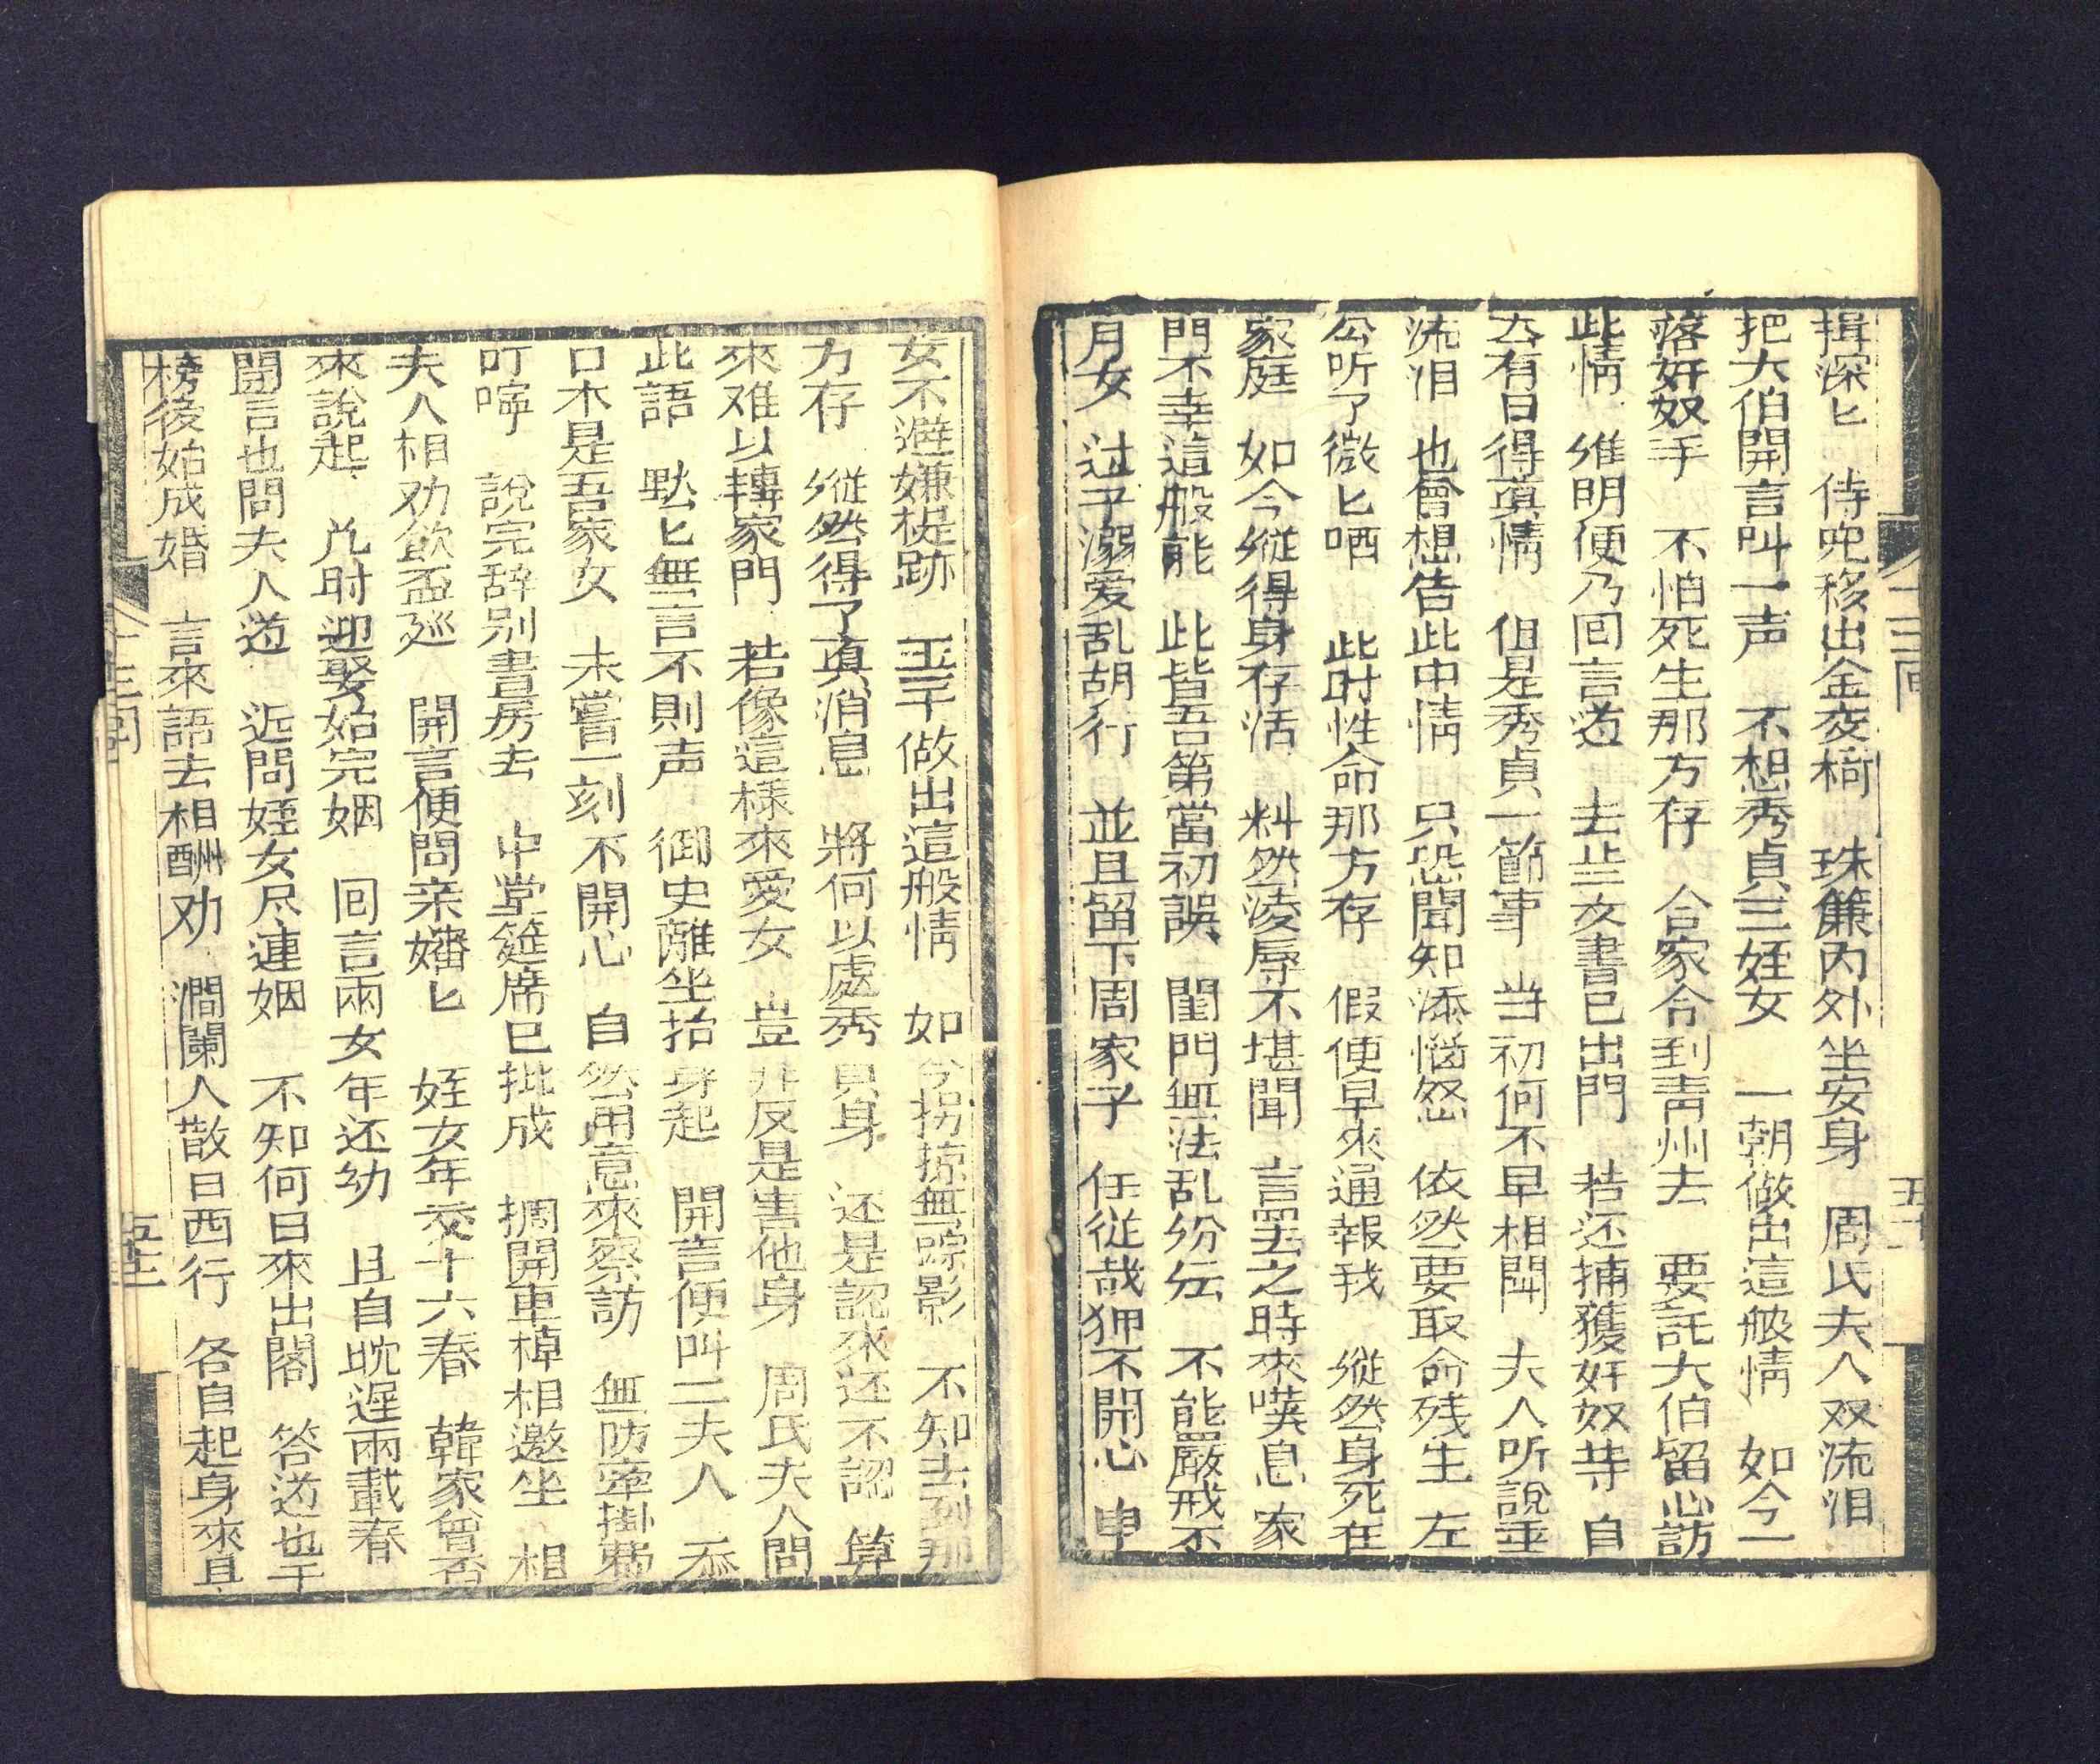 揖深匕　侍兜移出金交椅　珠簾內外坐安身　周氏夫人双流泪
把大伯開言叫一声　不想秀貞三姪女　一朝做出這般情　如今一
落奸奴手　不怕死生那方存　合家今到青州去　要託大伯留心訪
此情　維明便乃囘言道　去些文書已出門　若还捕獲奸奴等　自
然有日得真情　但是秀貞一節事　当初何不早相聞　夫人听說垂
流泪　也曾想告此中情　只恐聞知添惱怒　依然要取命残生　左
公听了微匕哂　此时性命那方存　假使早來通報我　縱然身死在
家庭　如今縱得身存活　料然淩辱不堪聞　言罢之時來嘆息　家
門不幸這般能　此皆吾第當初誤　閨門無法乱紛紜　不能嚴戒不
月女　过子溺爱乱胡行　並且留下周家子　任從哉狎不開心　申
女不避嫌㮛跡　致于做出這般情　如今拐掠無踪影　不知去到那
方存　縱然得了真消息　將何以處秀貞身　还是認來还不認　算
來难以轉家門　若像這樣來愛女　豈非反是害他身　周氏夫人聞
此語　黙匕無言不則声　御史離坐抬身起　開言便叫二夫人　忝
口木是吾家女　未嘗一刻不開心　自然用意來察訪　無防牽掛
叮嚀　說完辞别書房去　中堂筵席已批成　擺開車棹相邀坐　相
夫人相劝飲盃廵　開言便問亲嬸匕　姪女年交十六春　韓家曾否
來說起　凣时迎娶始完姻　回言兩女年还幼　且自躭遲兩載春
聞言也問夫人道　近問姪女尽連姻　不知何日來出閣　答道也于
榜後始成婚　言來語去相酬劝　澗闌人散日西行　各自起身來
十三囘
五十一
十三囘
五十二